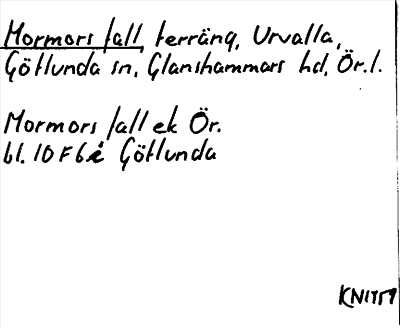 Mormors fall, terräng, Urvalla,
Götlunda sn, Glanshammars hd, Ör.l.
Mormors fall ek Ör.
bl. 10F6i Götlunda
KNITM